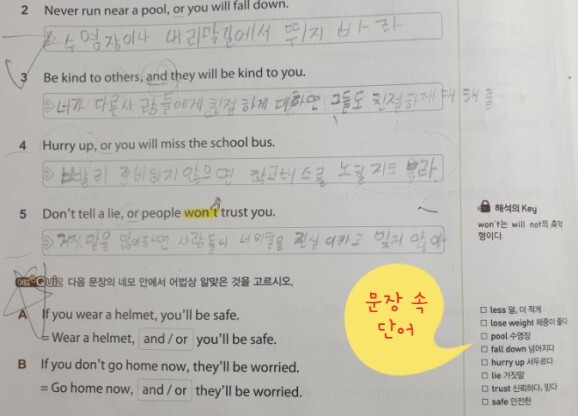 2 Never run near a pool, or you will fall down.
수영장이나 내리막길에서 뛰지 마라
3 Be kind to others, and they will be kind to you.
너가 다른사람들에게 친절하게 대하면 그들도 친절하게
4 Hurry up, or you will miss the school bus.
빨리 준비하지 않으면 놓칠지도 몰라.
5 Don't tell a lie, or people won't trust you.
거짓말을 많이하면 사람들이 믿지 않아
해석의 Key
won't는 will not의 축약
형이다.
QUIZ 다음 문장의 네모 안에서 어법상 알맞은 것을 고르시오.
A If you wear a helmet, you'll be safe.
= Wear a helmet, and / or you'll be safe.
B If you don't go home now, they'll be worried.
= Go home now, and / or they'll be worried.
문장 속
단어
less 덜, 더 적게
lose weight 체중이 줄다
pool 수영장
fall down 넘어지다
hurry up 서두르다
lie 거짓말
trust 신뢰하다, 믿다
safe 안전한